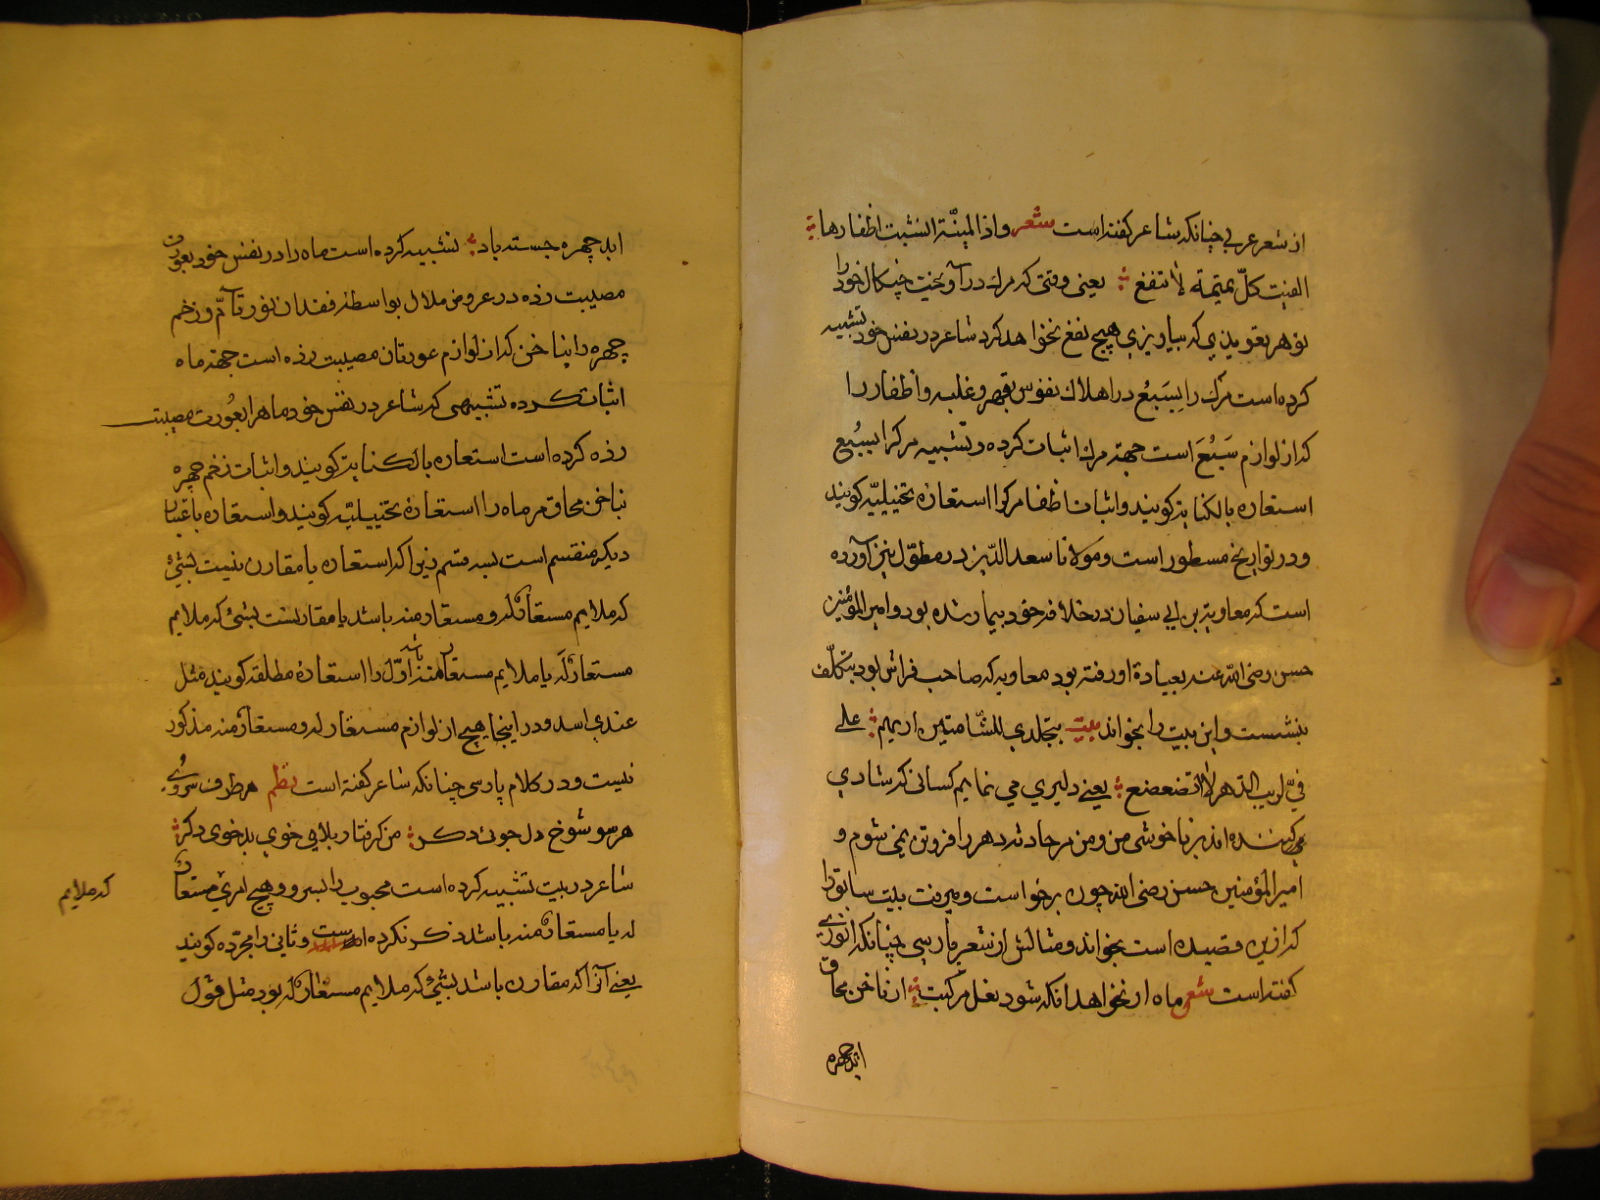 از شعر عربی چنانکه شاعر گفته است شعر و اذا المنیّة انشبت اظفارها
الفیت کلّ تمیمة لا تنفع یعنی وقتی که مرك در آویخت چنکال خود را
تو هر تعویذی که بیاویزی هیچ نفع نخواهد کرد شاعر در نفس خود تشبیه
کرده است مرك را بسَبُع در اهلاك نفوس بقهر و غلبه و اظفار را
که از لوازم سَبُعَ است جهة مرك اثبات کرده و تشبیه مرکرا بسبُع
استعاره بالکنایة کویند و اثبات اظفار مرکرا استعارهٔ تخییلیّه کویند
و در تواریخ مسطور است و مولانا سعد الدّین در مطوّل نیز آورده
است که معاویة بن ابی سفیان در خلافة خود بیمار شده بود و امیر المؤمنین
حسن رضی الله عنه بعیادة او رفته بود معاویه که صاحب فراش بود بتکلّف
بنشست و این بیت را بخواند بیت بتجلدی للشّامتین اریهم علی
انّی لریب الدّهر لا اتضعضع یعنی دلیری می نمایم کسانی که شادی
می کننده اند بر ناخوشی من و من بر حادثه دهر را فروتن نمی شوم و
امیر المؤمنین حسن رضی الله چون برخواست و میرفت بیت سابق را
که ازین قصیده است بخواند و مثالش از شعر پارسی چنانکه انوری
کفته است شعر ماه ار نخواهد انکه شود نعل مرکبت از ناخن محاق
ابد چهره
ابد چهره جسته باد تشبیه کرده است ماه را در نفس خود بعورت
مصیبت رذه در عروض ملال بواسطهٔ فقدان نور تامّ و زخم
چهره را بناخن که از لوازم عورتان مصیبت رذه است جهة ماه
اثبات کرده تشبیهی که شاعر در نفس خود ماهرا بعُورت مصیبت
رذه کرده است استعاره بالکنایة کویند و اثبات زخم چهره
بناخن محاق مر ماه را استعارهٔ تخییلیّه کویند و استعاره باعتبار
دیکر منقسم است بسه قسم زیرا که استعاره یا مقارن نیست بشئ
که ملایم مستعار له و مستعار منه باشد یا مقارنست بشئ که ملایم
مستعار له یا ملایم مستعار منه باشد اوّل را استعارهٔ مطلقه کویند مثل
عندی اسد و در اینجا هیچ از لوازم مستعار له و مستعار منه مذکور
نیست و در کلام پارسی چنانکه شاعر کفته است نظم هر طرف سروی
هر سو شوخ دل جوئ دکر من کرفتار بلای خوی بد خوی دکر
شاعر در بیت تشبیه کرده است محبوب را بسرو و هیچ امری مستعار
له یا مستعار منه باشد ذکر نکرده است و ثانی را مجرّده کویند
یعنی آنرا که مقارن باشد بشئ که ملایم مستعار له بود مثل قول
که ملایم